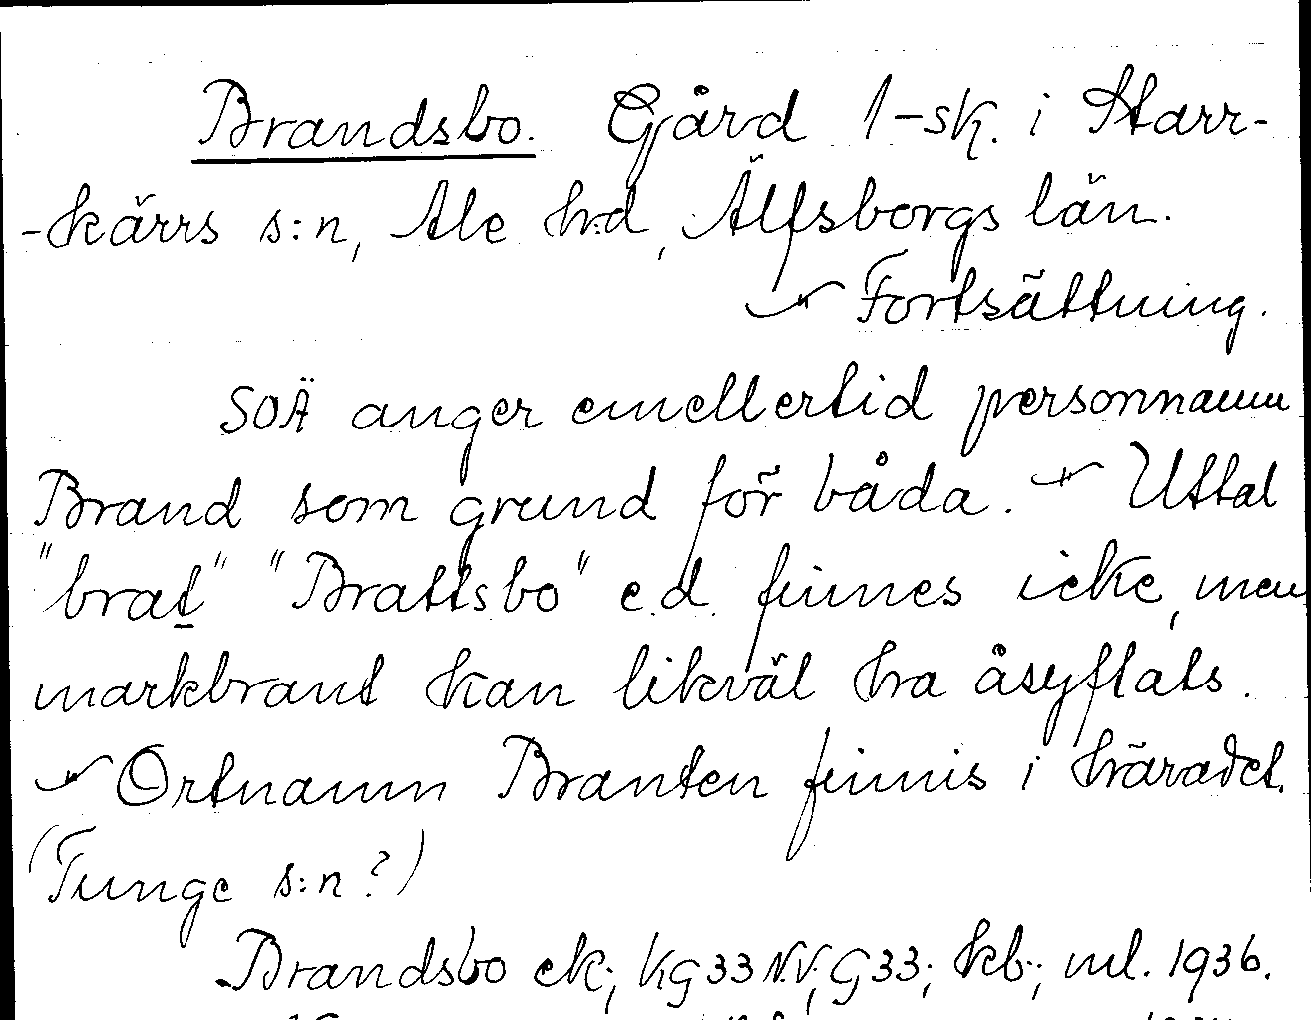 Brandsbo. Gård 1-sk. i Starr-
-kärrs s:n, Ale hrd, Älfsborgs län.
Fortsättning.
SOÄ anger emellertid personnamn
Brand som grund för båda. Uttal
"brat" "Brattsbo" e.d. finnes icke, men
markbrant kan likväl ha åsyftats.
Ortnamn Branten finnis i häradet.
(Tunge s:n?)
Brandsbo ek; KG33NV; G33; kb; ml. 1936.